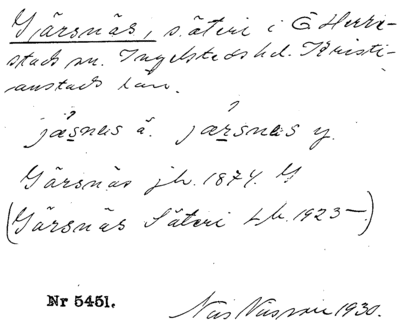 Gärsnäs, säteri i Ö Herre-
stads sn. Ingelstads hd. Kristi-
anstads län.
jæsnas ä. jærsnæs y.
Gärsnäs jb. 1874. G
(Gärsnäs Säteri Lb. 1923–)
Nr 5451.
Nils Nilsson 1930.